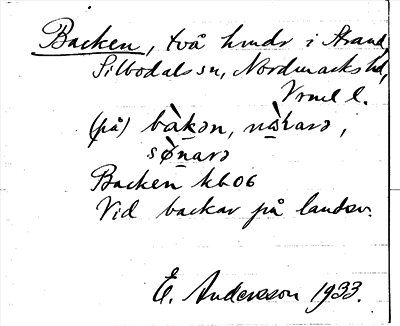 Backen, två hmdr i Strand,
Silbodals sn, Nordmarks hd,
Vrml l.
(på) bàkən, nò̱rarə,
sø̱̀narə
Backen kb06
Vid backar på landsv.
E. Andersson 1933.